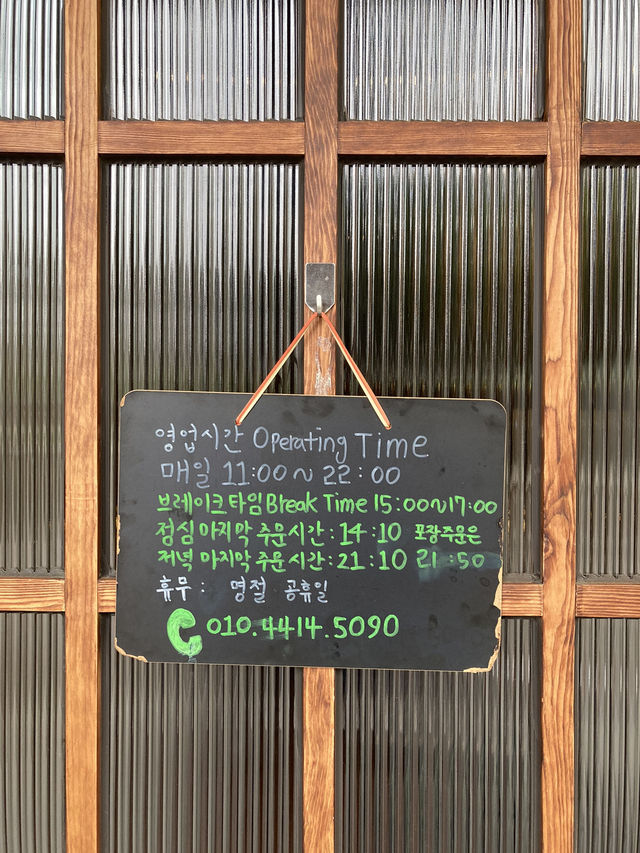 영업시간 Operating Time
매일 11:00~22:00
브레이크타임 Break Time 15:00~17:00
점심 마지막 주문시간:14:10 포장주문은
저녁 마지막 주문시간:21:10 21:50
휴무: 명절 공휴일
010.4414.5090